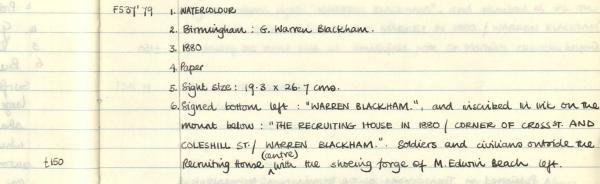 F537'79 1. WATERCOLOUR
2. Birmingham : G. Warren Blackham.
3. 1880
4. Paper
5. Sight size : 19.3 x 26.7 cms.
6. Signed bottom left : "WARREN BLACKHAM.", and inscribed in ink on the
mount below : "THE RECRUITING HOUSE IN 1880 / CORNER OF CROSS ST. AND
COLESHILL ST. / WARREN BLACKHAM.". Soldiers and civilians outside the
£150 Recruiting House (centre) with the shoeing forge of M. Edwin Beach left.